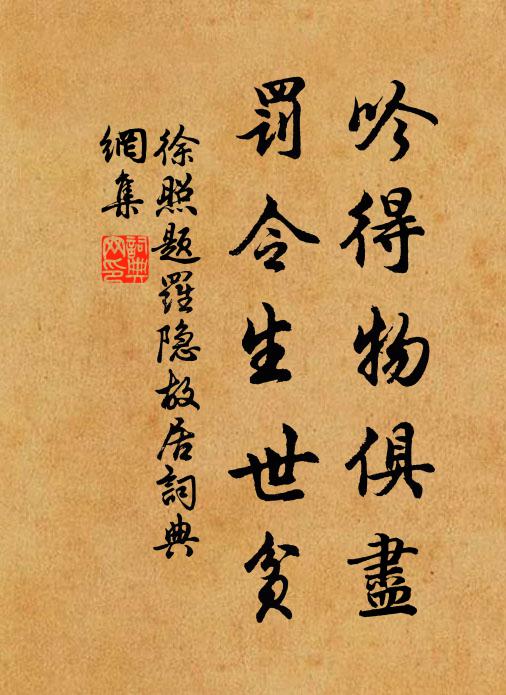 吟得物俱盡
罰令生世貧
徐照題羅隐故居詞典
網集
詞典
网印